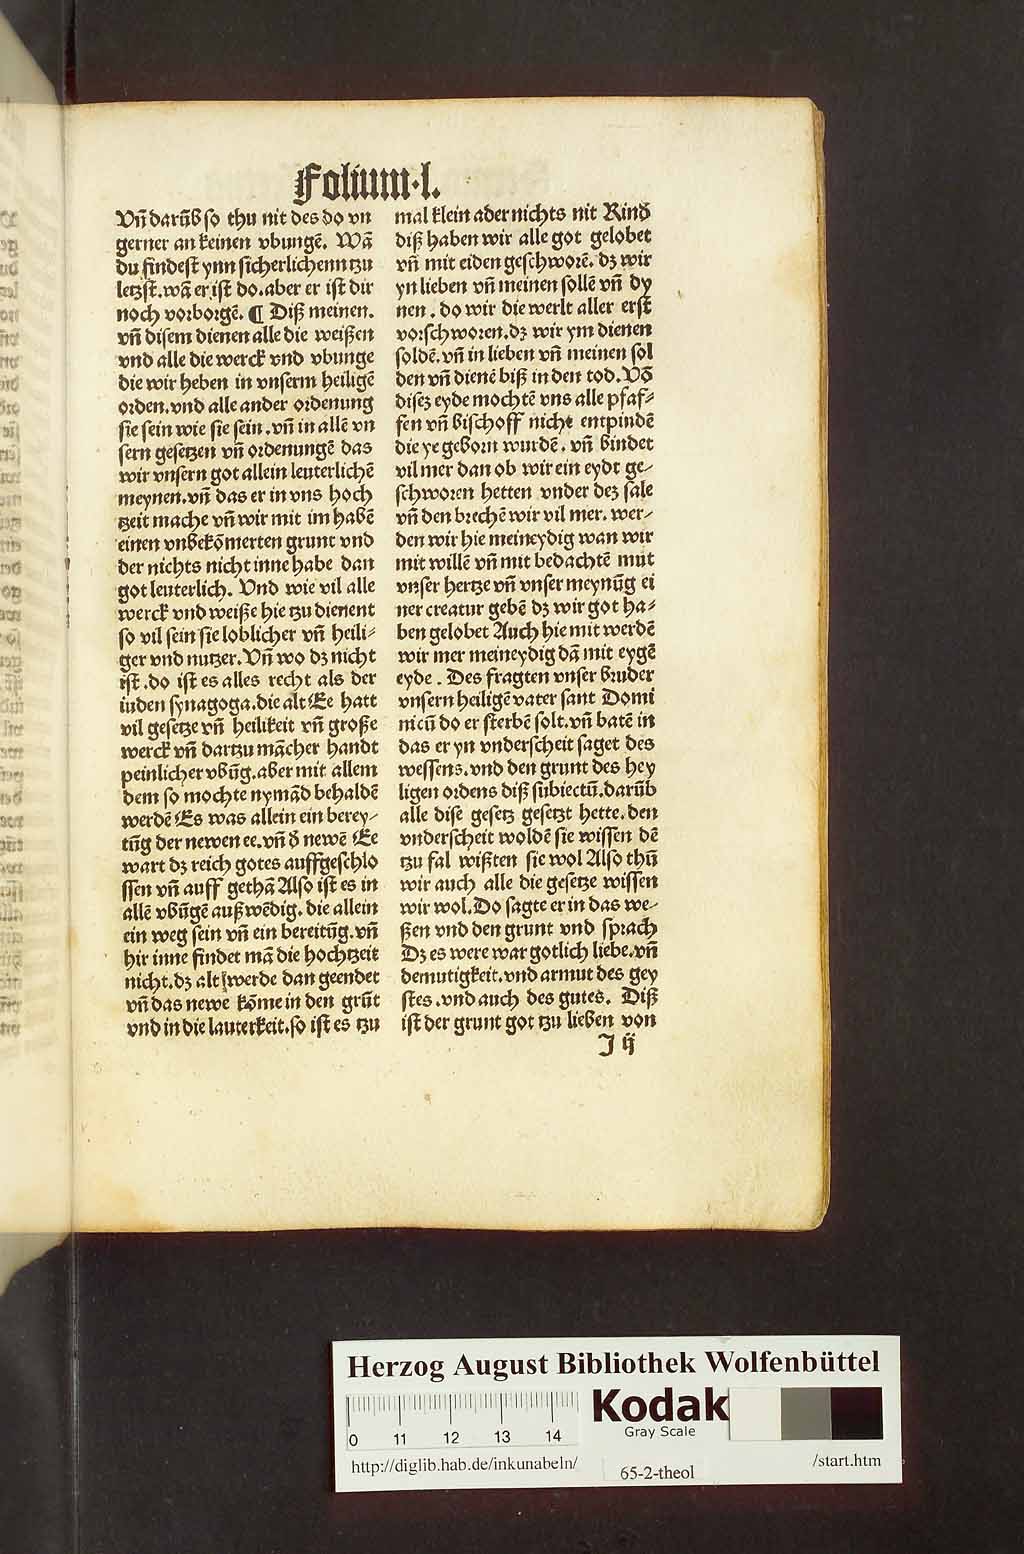 Folium·l.
Vñ darūb so thu nit des do vn
gerner an keinen vbungē. Wā
du findest ynn sicherlichenn tzu
letzst. wā er ist do. aber er ist dir
noch vorborgē. ¶ Diß meinen.
vñ disem dienen alle die weißen
vnd alle die werck vnd vbunge
die wir heben in vnserm heiligē
orden. vnd alle ander ordenung
sie sein wie sie sein. vñ in allē vn
sern gesetzen vñ ordenungē das
wir vnsern got allein leuterlichē
meynen. vñ das er in vns hoch
tzeit mache vñ wir mit im habē
einen vnbekōmerten grunt vnd
der nichts nicht inne habe dan
got leuterlich. Vnd wie vil alle
werck vnd weiße hie tzu dienent
so vil sein sie loblicher vñ heili-
ger vnd nutzer. Vñ wo dz nicht
ist. do ist es alles recht als der
iuden synagoga. die alt Ee hatt
vil gesetze vñ heilikeit vñ große
werck vñ dartzu mācher handt
peinlicher vbūg. aber mit allem
dem so mochte nymād behaldē
werdē Es was allein ein berey-
tūg der newen ee. vñ ď newē Ee
wart dz reich gotes auffgeschlo
ssen vñ auff gethā Also ist es in
allē vbūgē außwēdig. die allein
ein weg sein vñ ein bereitūg. vñ
hir inne findet mā die hochtzeit
nicht. dz alt werde dan geendet
vñ das newe kōme in den grūt
vnd in die lauterkeit. so ist es tzu
mal klein ader nichts nit Kinď
diß haben wir alle got gelobet
vñ mit eiden geschworē. dz wir
yn lieben vñ meinen sollē vñ dy
nen. do wir die werlt aller erst
vorschworen. dz wir ym dienen
soldē. vñ in lieben vñ meinen sol
den vñ dienē biß in den tod. Vō
disez eyde mochtē vns alle pfaf-
fen vñ bischoff nicht entpindē
die ye geborn wurdē. vñ bindet
vil mer dan ob wir ein eydt ge-
schworen hetten vnder dez sale
vñ den brechē wir vil mer. wer-
den wir hie meineydig wan wir
mit willē vñ mit bedachtē mut
vnser hertze vñ vnser meynūg ei
ner creatur gebē dz wir got ha-
ben gelobet Auch hie mit werdē
wir mer meineydig dā mit eygē
eyde. Des fragten vnser bruder
vnsern heiligē vater sant Domi
nicū do er sterbē solt. vñ batē in
das er yn vnderscheit saget des
wessens. vnd den grunt des hey
ligen ordens diß subiectū. darūb
alle dise gesetz gesetzt hette. den
vnderscheit woldē sie wissen dē
tzu fal wißten sie wol Also thū
wir auch alle die gesetze wissen
wir wol. Do sagte er in das we-
ßen vnd den grunt vnd sprach
Dz es were war gotlich liebe. vñ
demutigkeit. vnd armut des gey
stes. vnd auch des gutes. Diß
ist der grunt got tzu lieben von
J ij
Herzog August Bibliothek Wolfenbüttel
0 11 12 13 14
Kodak
Gray Scale
http://diglib.hab.de/inkunabeln/
65-2-theol
/start.htm